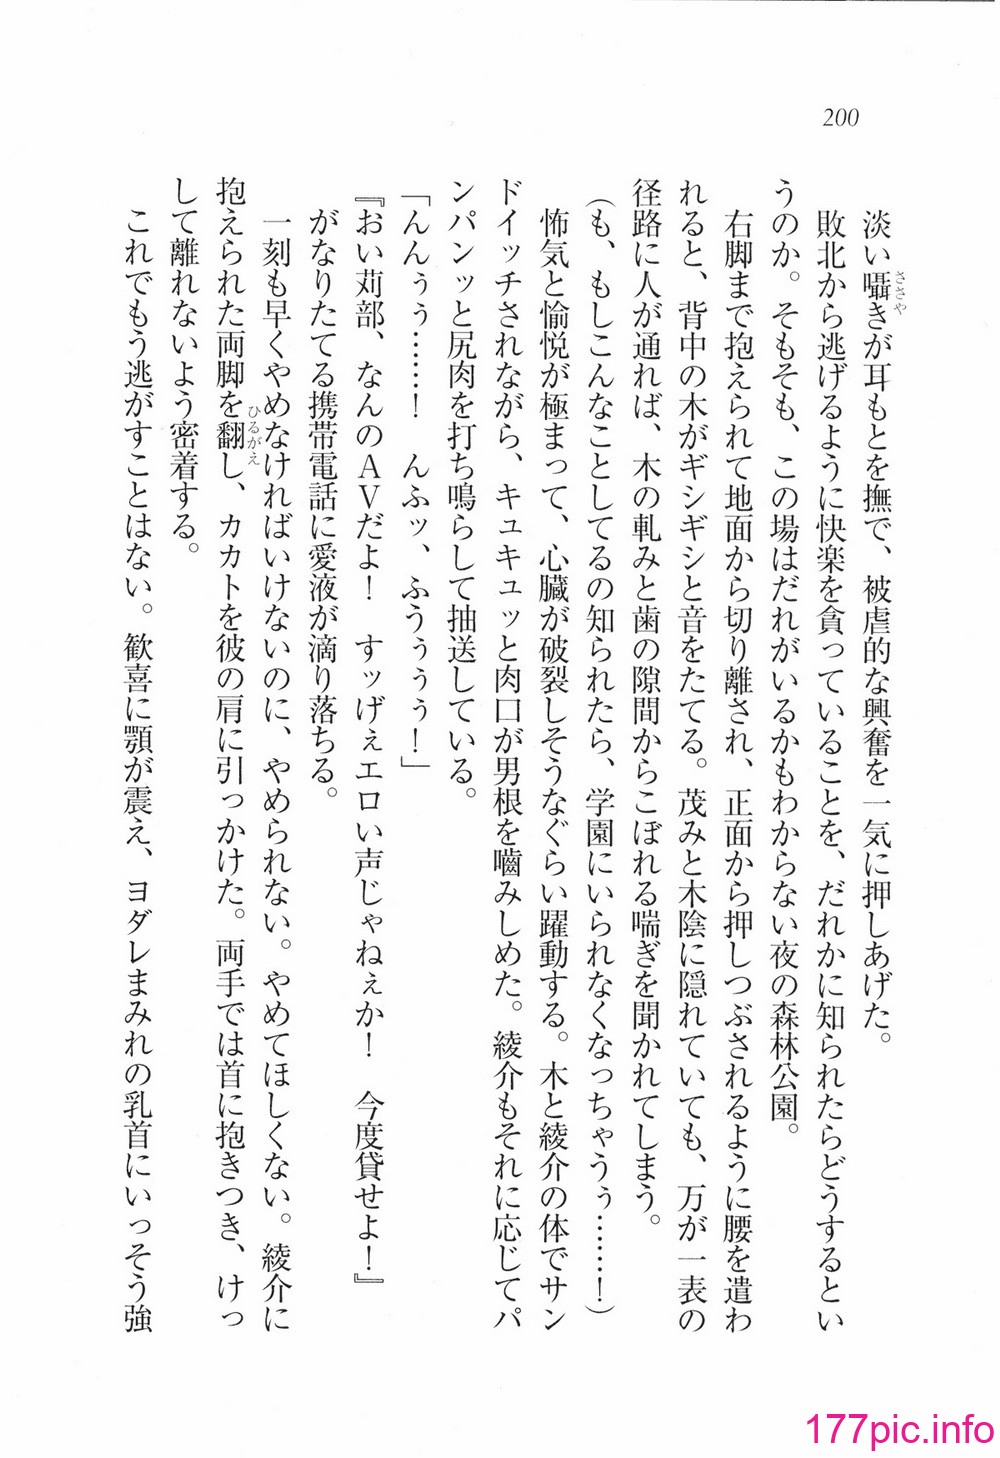 200
淡い囁きが耳もとを撫で、被虐的な興奮を一気に押しあげた。
敗北から逃げるように快楽を貪っていることを、だれかに知られたらどうするとい
うのか。そもそも、この場はだれがいるかもわからない夜の森林公園。
右脚まで抱えられて地面から切り離され、正面から押しつぶされるように腰を遣わ
れると、背中の木がギシギシと音をたてる。茂みと木陰に隠れていても、万が一表の
径路に人が通れば、木の軋みと歯の隙間からこぼれる喘ぎを聞かれてしまう。
（も、もしこんなことしてるの知られたら、学園にいられなくなっちゃうぅ……！）
怖気と愉悦が極まって、心臓が破裂しそうなぐらい躍動する。木と綾介の体でサン
ドイッチされながら、キュキュッと肉口が男根を嚙みしめた。綾介もそれに応じてパ
ンパンッと尻肉を打ち鳴らして抽送している。
「んんぅぅ……！　んふッ、ふうぅぅぅ！」
『おい苅部、なんのＡＶだよ！　すッげぇエロい声じゃねぇか！　今度貸せよ！』
がなりたてる携帯電話に愛液が滴り落ちる。
一刻も早くやめなければいけないのに、やめられない。やめてほしくない。綾介に
抱えられた両脚を翻し、カカトを彼の肩に引っかけた。両手では首に抱きつき、けっ
して離れないよう密着する。
これでもう逃がすことはない。歓喜に顎が震え、ヨダレまみれの乳首にいっそう強
177pic.info